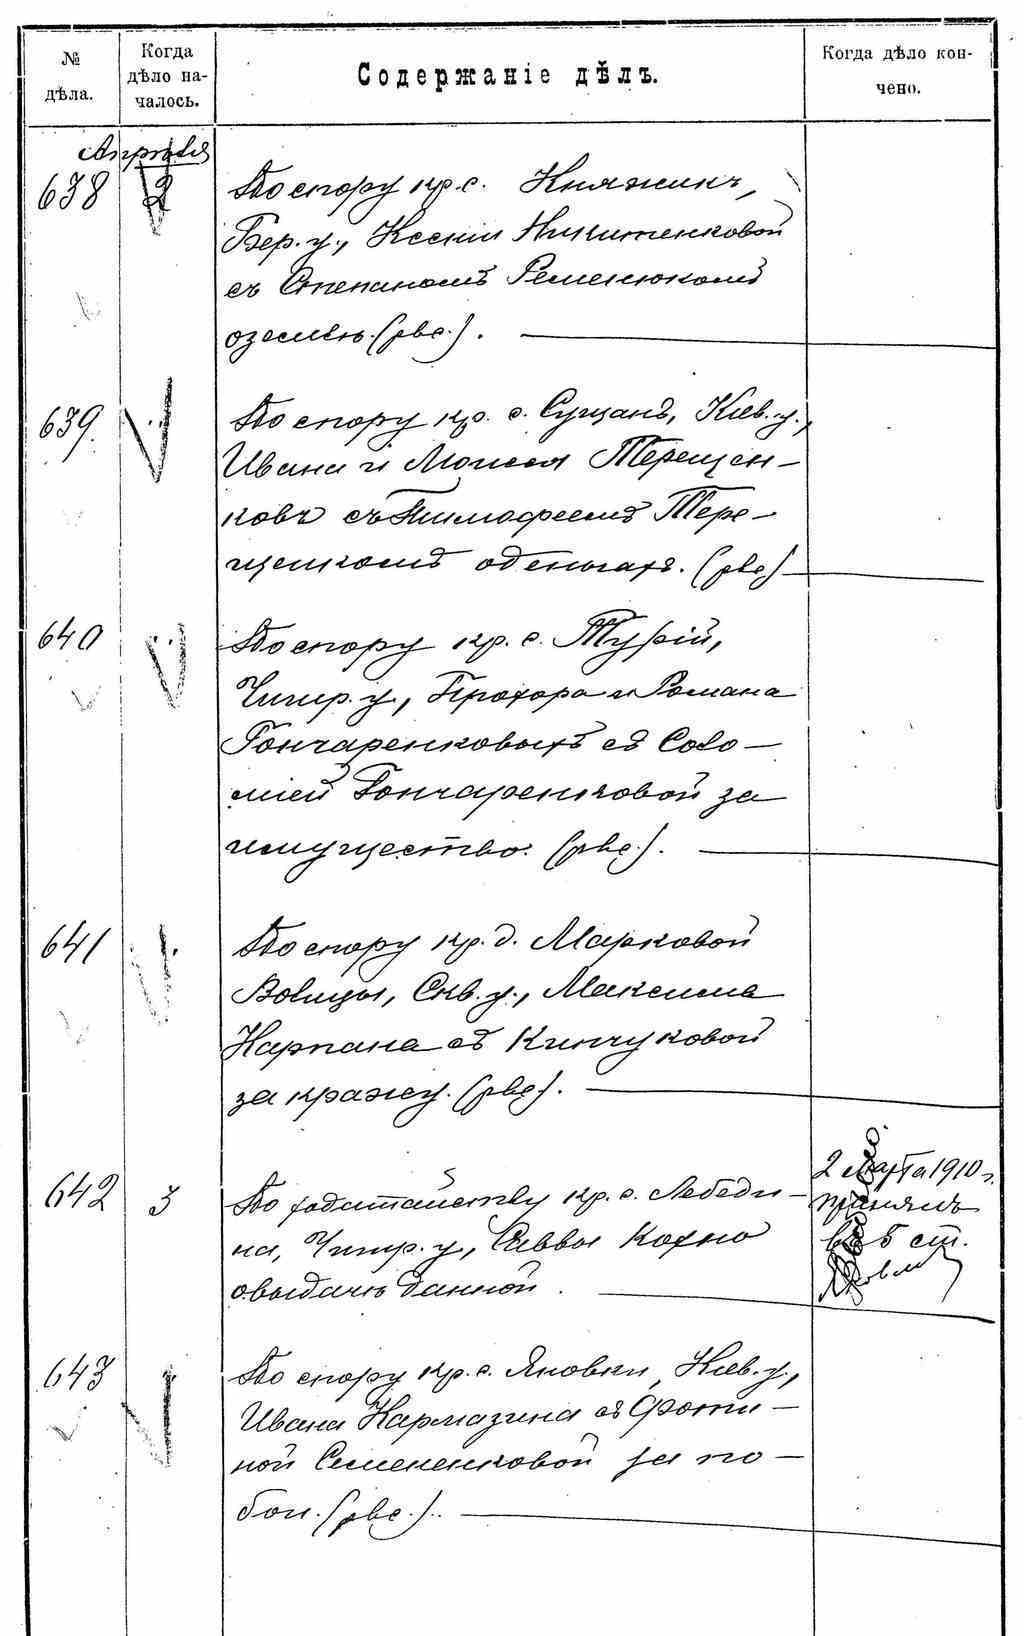 № дѣла.
Когда дѣло на-
чалось.
Содержаніе дѣлъ.
Когда дѣло кон-
чено.
Апрѣля
638 2 По спору кр. с. Княжикъ,
Вер. у., Ксеніи Никитенковой
съ Степаномъ Ременюкомъ
о землѣ. (рве.).
639. По спору кр. с. Сущанъ, Кіев. у.,
Ивана и Моисея Терещен-
ковъ съ Тимофеемъ Тере-
щенкомъ о деньгахъ. (рве)
640 По спору кр. с. Турій,
Чигир. у., Прохора и Романа
Гончаренковыхъ съ Соло-
міей Гончаренковой за
имущество. (рве.).
641 По спору кр. д. Марковой
Волицы, Скв. у., Максима
Карпана съ Кинчуковой
за кражу. (рве.).
642 3 По ходатайству кр. с. Лебеди-
на, Чигир. у., Саввы Кохно
о выдачѣ данной.
2 Марта 1910 г.
принялъ
въ 5 ст.
643 По спору кр. с. Яновки, Кіев. у.,
Ивана Кармазина съ Фоти-
ной Семененковой за по-
бои. (рве.).